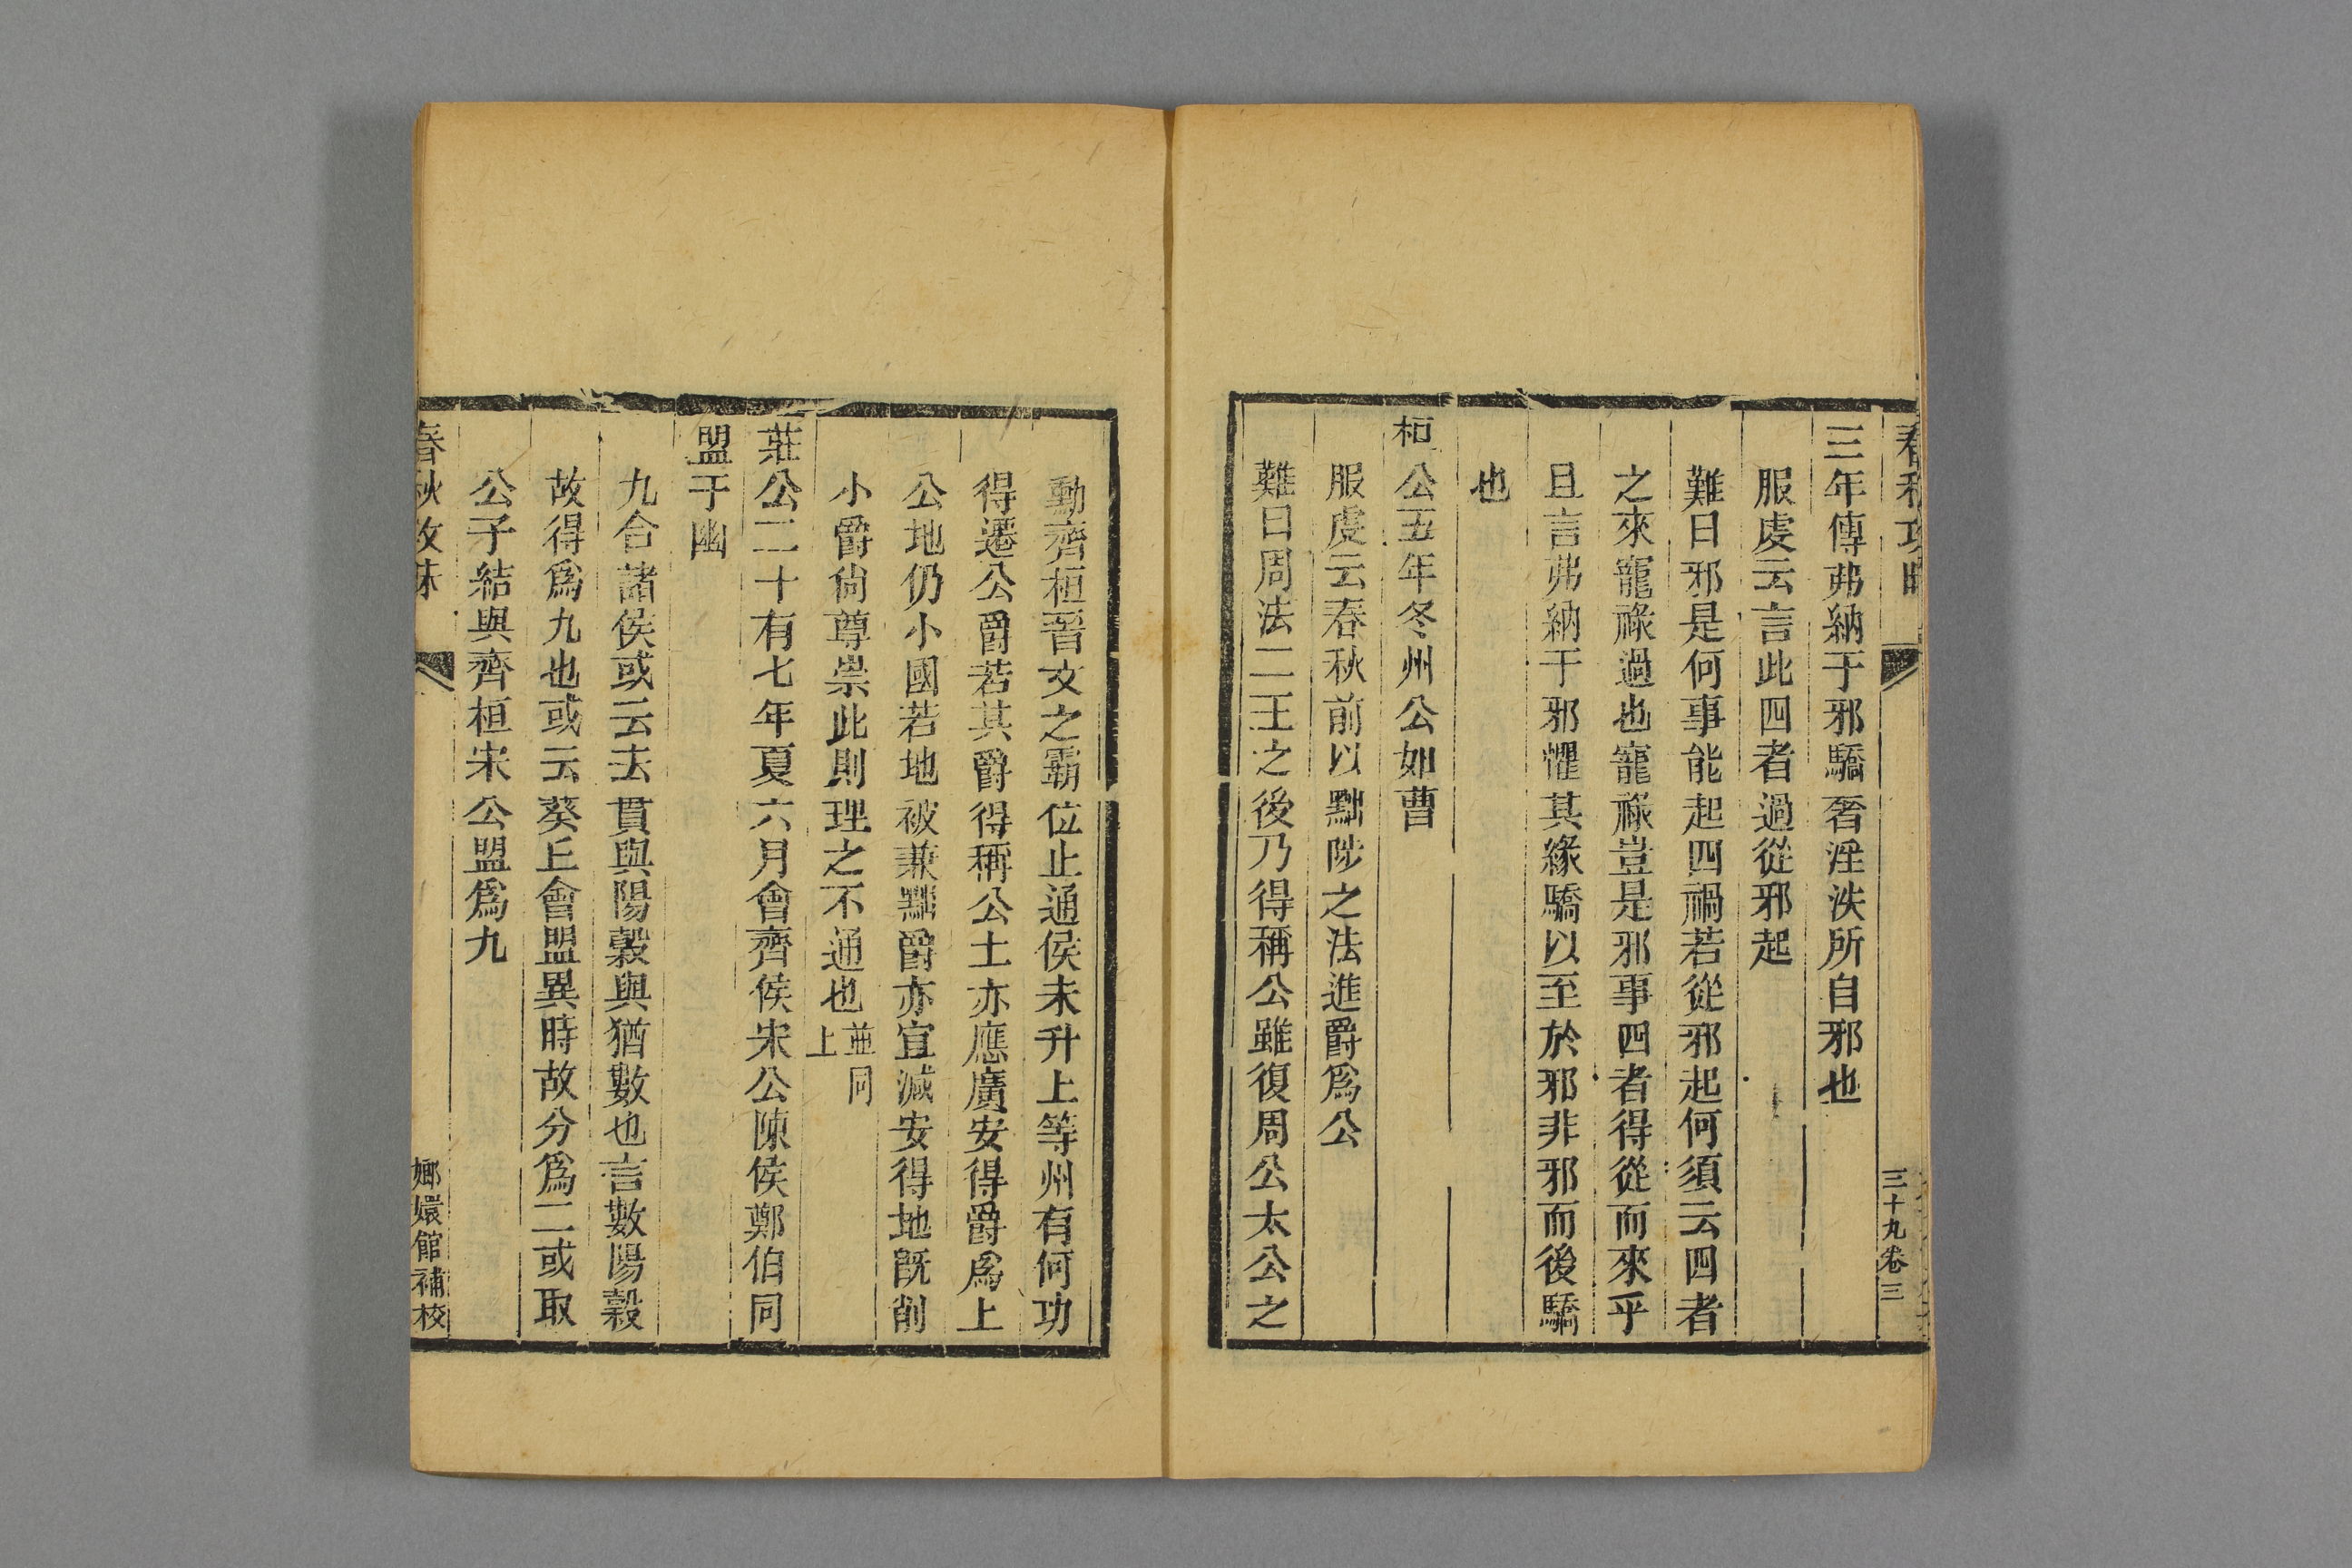 三十九卷三
三年傳弗納于邪驕奢淫泆所自邪也
服虔云言此四者過從邪起
難曰邪是何事能起四禍若從邪起何須云四者
之來寵祿過也寵祿豈是邪事四者得從而來乎
且言弗納于邪懼其緣驕以至於邪非邪而後驕
也
桓公五年冬州公如曹
服虔云春秋前以黜陟之法進爵爲公
難曰周法二王之後乃得稱公雖復周公太公之
勳齊桓晉文之霸位止通侯未升上等州有何功
得遷公爵若其爵得稱公土亦應廣安得爵爲上
公地仍小國若地被兼黜爵亦宜減安得地既削
小爵尙尊崇此則理之不通也並同
上
莊公二十有七年夏六月會齊侯宋公陳侯鄭伯同
盟于幽
九合諸侯或云去貫與陽穀與猶數也言數陽穀
故得爲九也或云葵丘會盟異時故分爲二或取
公子結與齊桓宋公盟爲九
春秋攻昧
嫏嬛館補校